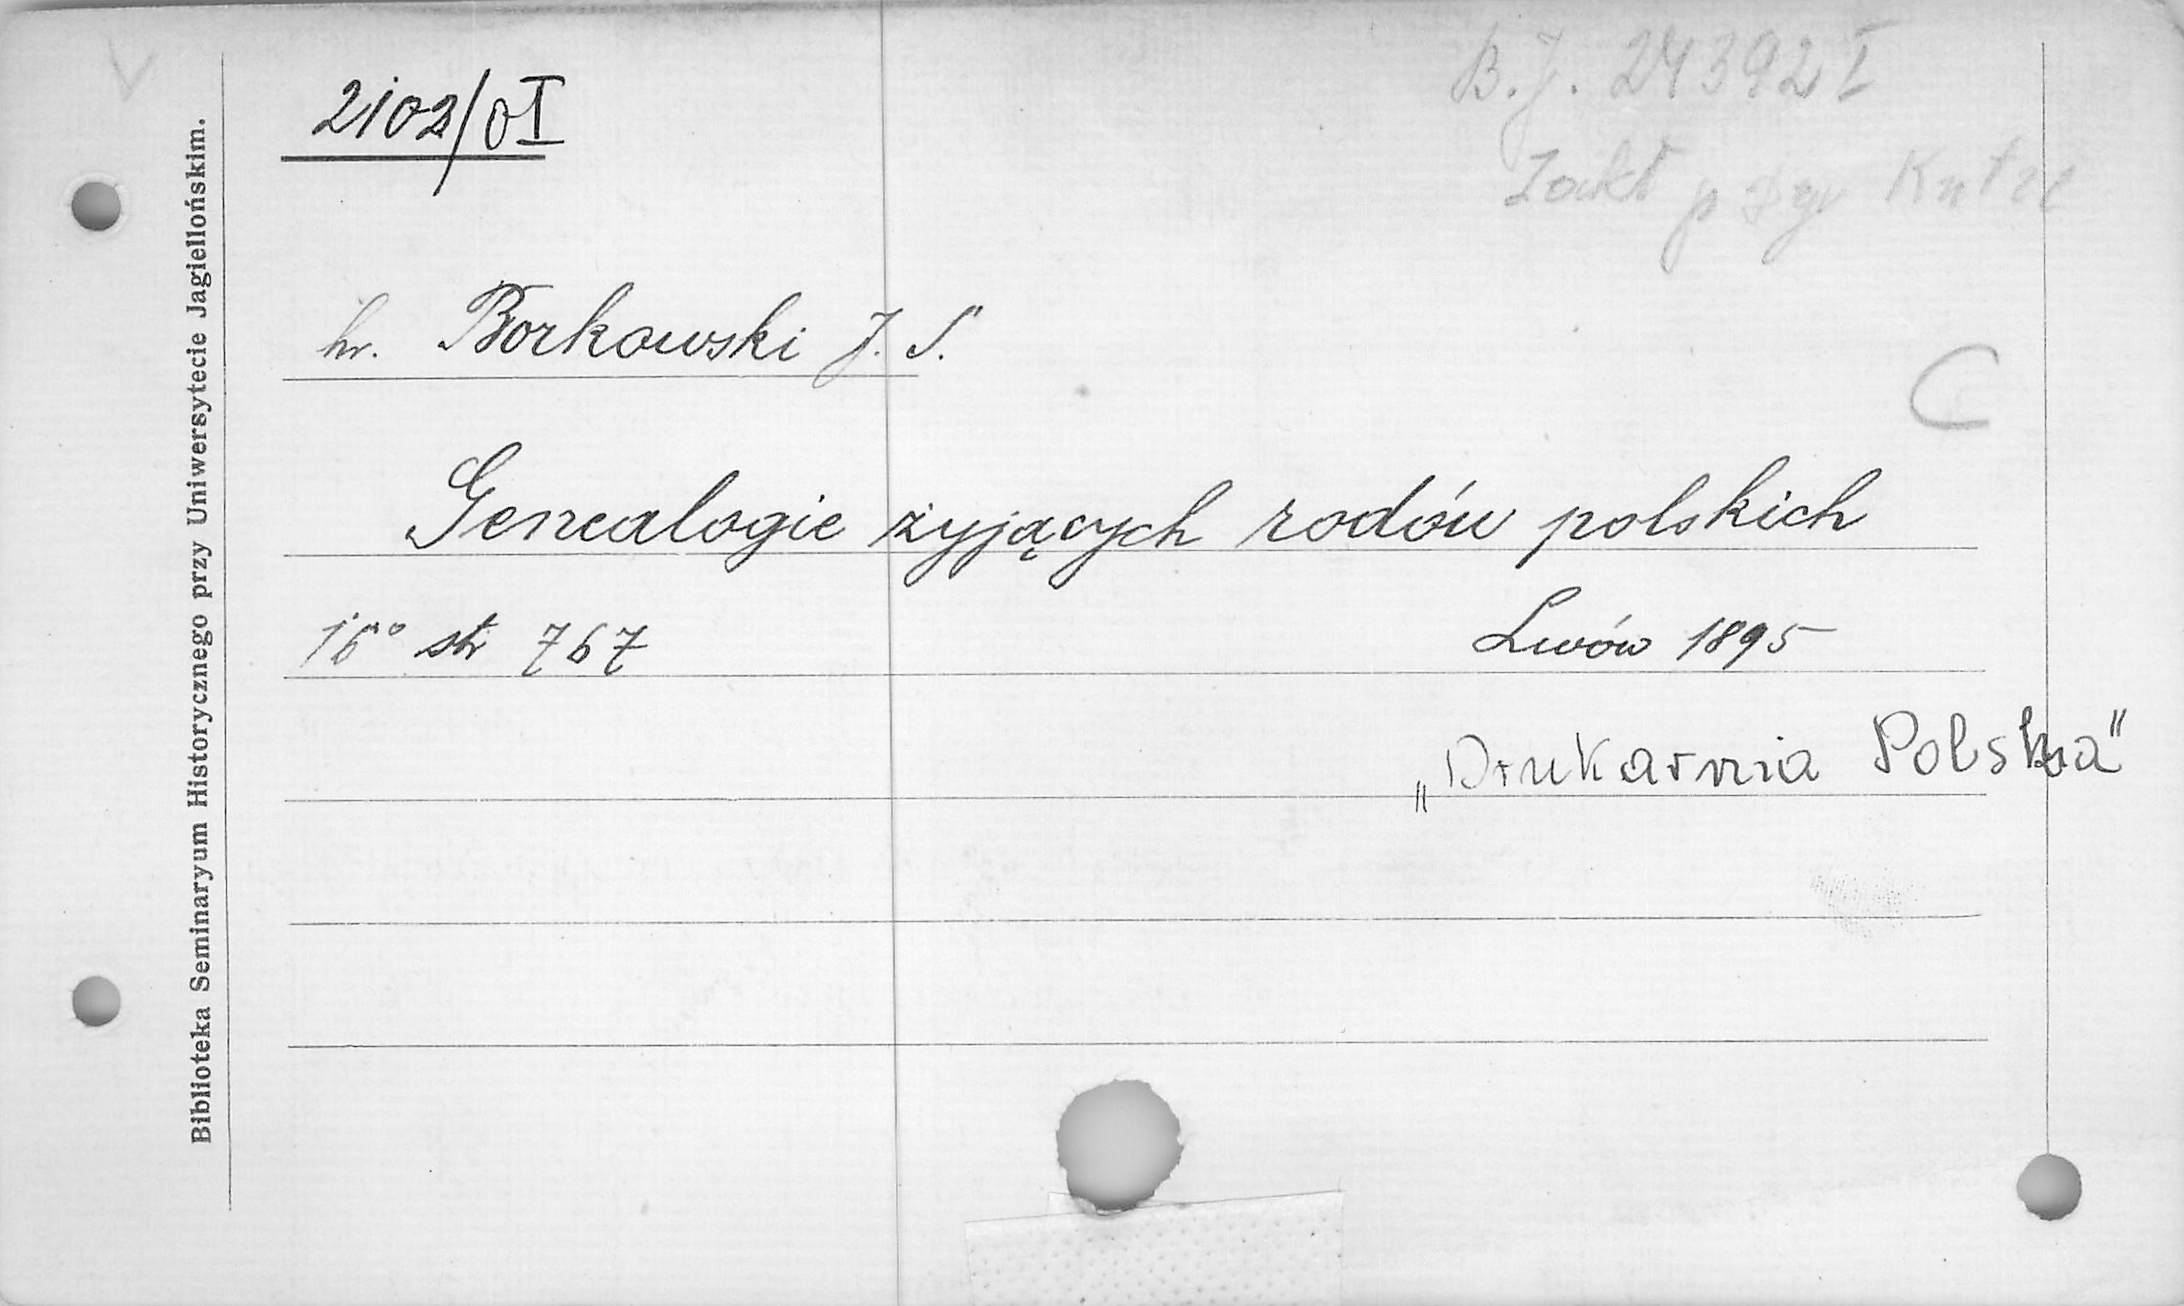 B.J. 24392 I
2102/0 I
Zakł
hr. Borkowski J. S.
C
Genealogie żyjących rodów polskich
16° str 767 Lwów 1895
„Drukarnia Polska"
Biblioteka Seminaryum Historycznego przy Uniwersytecie Jagiellońskim.